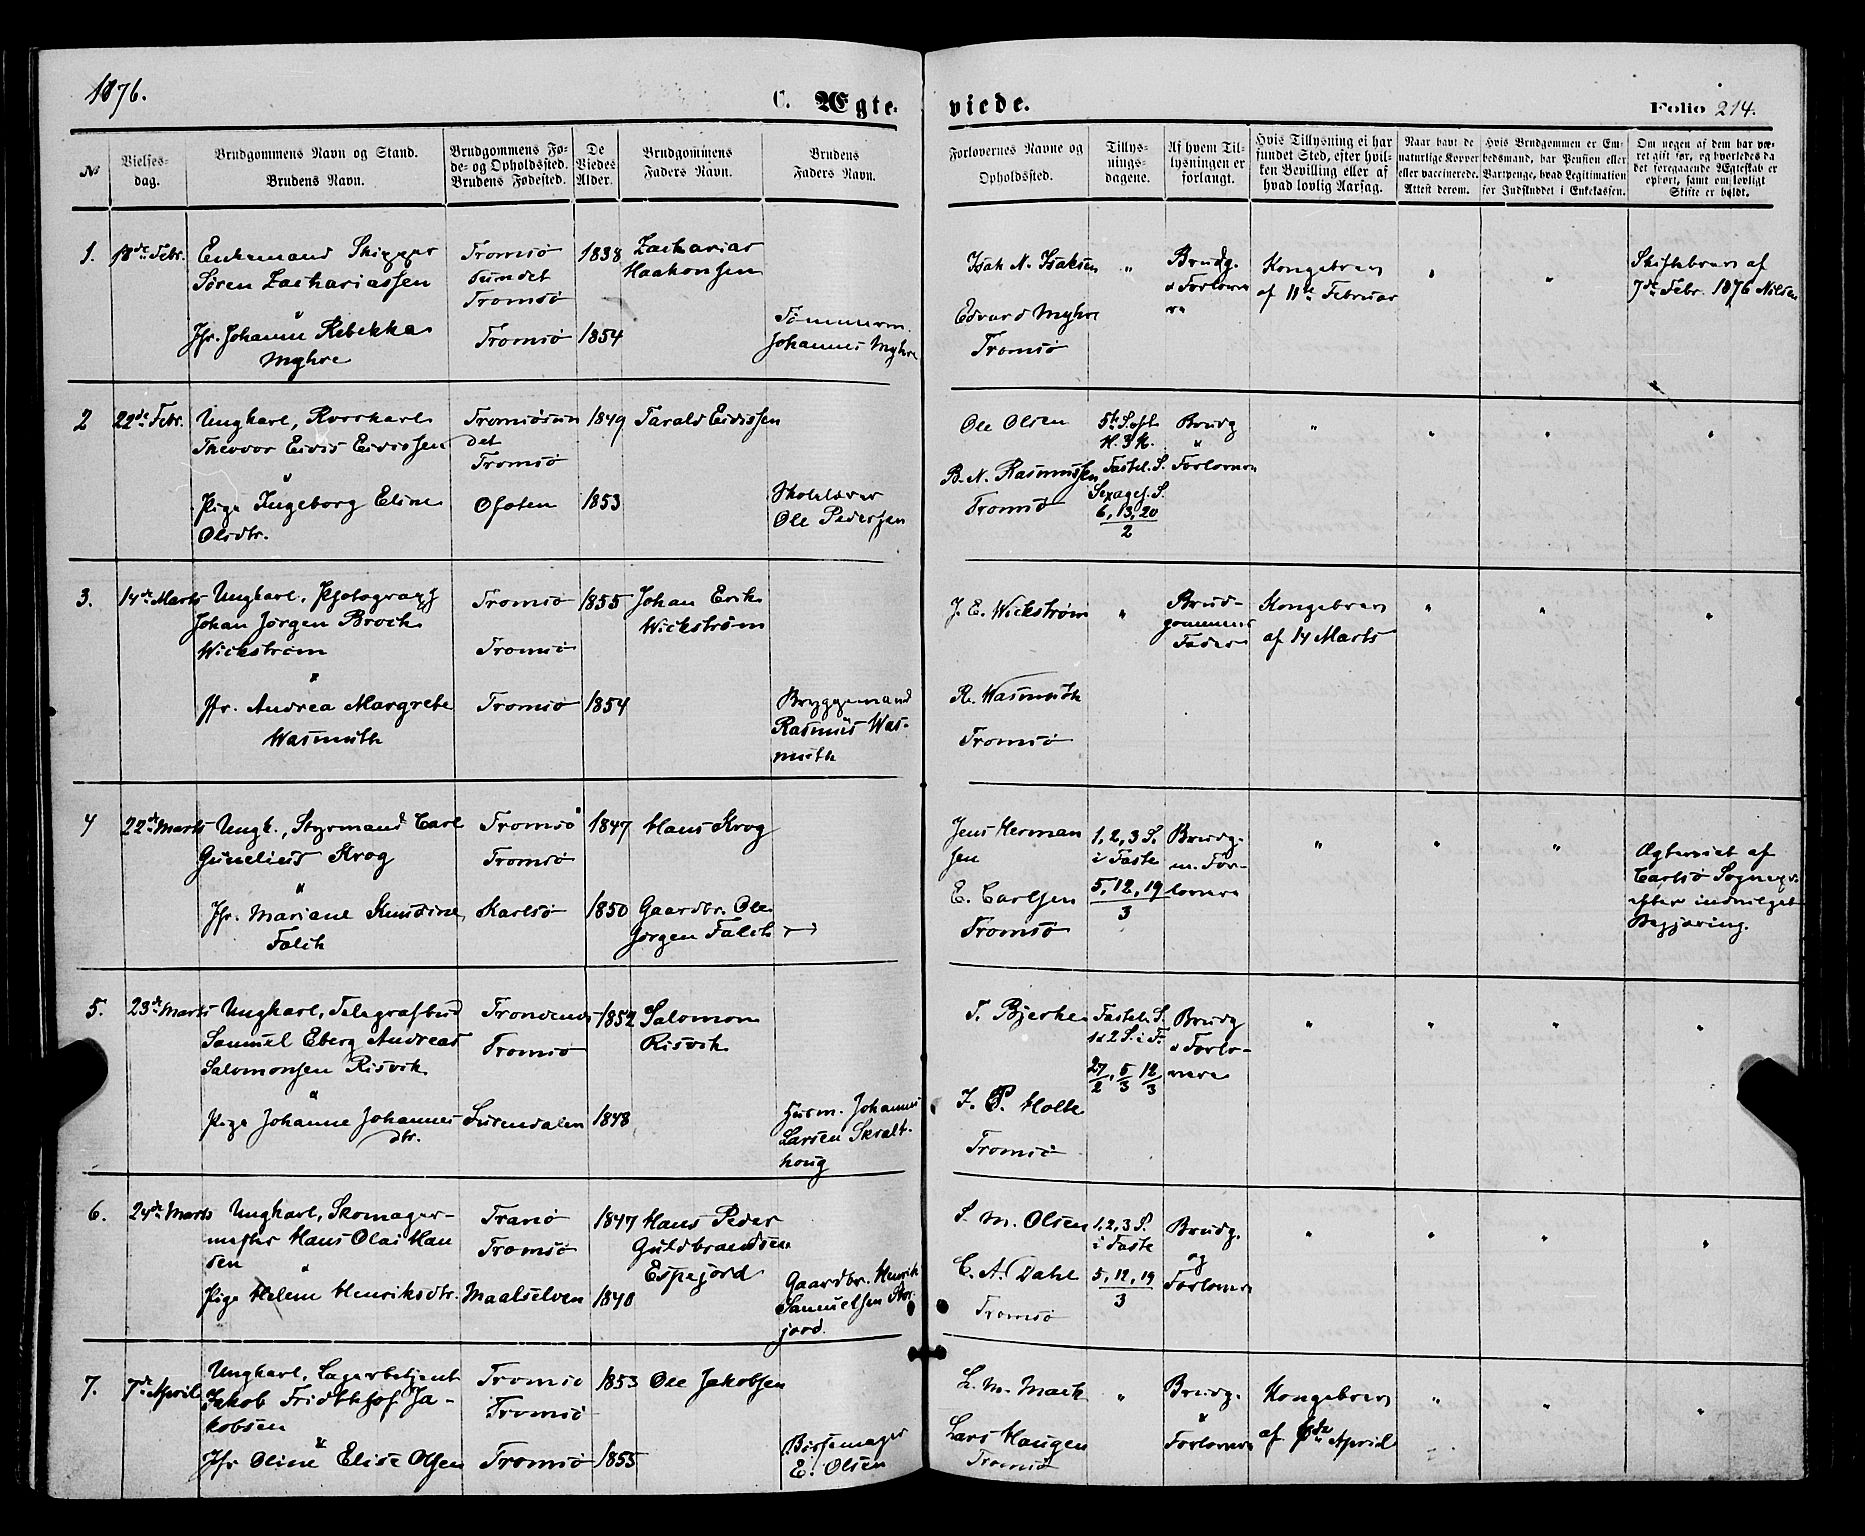 1876.
C. Ægte-
viede.
Folio 214.
No
Vielses-
dag.
Brudgommens Navn og Stand.
Brudens Navn.
Brudgommens Fø-
de- og Opholdssted.
Brudens Fødested.
De
Viedes
Alder.
Brudgommens
Faders Navn.
Brudens
Faders Navn.
Forlovernes Navne og
Opholdssted.
Tillys-
nings-
dagene.
Af hvem Til-
lysningen er
forlangt.
Hvis Tillysning ei har
fundet Sted, efter hvil-
ken Bevilling eller af
hvad lovlig Aarsag.
Naar havt de
naturlige Kopper
eller vaccinerede.
Attest derom.
Hvis Brudgommen er Em-
bedsmand, har Pension eller
Vartpenge, hvad Legitimation
for Indskuddet i Enkekassen.
Om nogen af dem har væ-
ret gift før, og hvorledes da
det foregaaende Ægteskab er
ophørt, samt om lovligt
Skifte er holdt.
1. 18de Febr.
Enkemand Skipper
Søren Zachariassen
"
Jfr. Johanne Rebekka
Myhre
Tromsø
sundet
Tromsø
Tromsø
1838
1854
Zacharias
Haakonsen
Tømmerm.
Johannes Myhre
Isak N. Isaksen
Edvard Myhre
Tromsø
"
Brudg.
& Forlove
re
Kongebrev
af 11te Februar
"
"
Skiftebrev af
7de Febr. 1876 Nilsen
2 22de Febr.
Ungkarl, Rorskarl
Theodor Eidis Eidissen
"
Pige Ingeborg Eline
Olsdtr.
Tromsøsun
det
Tromsø
Ofoten
1849
1853
Tarald Eidissen
Skolelærer
Ole Pedersen
Ole Olsen
B. N. Rasmussen
Tromsø
H. 3 K.
Fastel. S.
Sexages. S.
6, 13, 20
2
Brudg
"
Forlovere
"
"
"
"
3. 14de Marts
Ungkarl, Photograph
Johan Jørgen Broch
Wickstrøm
"
Jfr. Andrea Margrethe
Wasmuth
Tromsø
Tromsø
Tromsø
1855
1854
Johan Erik
Wickstrøm
Bryggemand
Rasmus Was-
muth
J. E. Wickstrøm
R. Wasmuth
Tromsø
"
Brud-
gommens
Fader
Kongebrev
af 14 Marts
"
"
"
4 22de Marts
Ungk., Styrmand Carl
Gunelius Krog
"
Jfr. Mariane Knudine
Falch
Tromsø
Tromsø
Karlsø
1847
1850
Hans Krog
Gaardbr. Ole
Jørgen Falch
Jens Herman
sen
E. Carlsen
Tromsø
1, 2, 3 S.
i Faste
5, 12, 19
3
Brudg.
m. For-
lovere
"
"
"
Ægteviet af
Carlsø Sognepr.
efter indvilget
Begjæring.
5. 23de Marts
Ungkarl, Telegrafbud
Samuel Eberg Andreas
Salomonsen Risvik
"
Pige Johanne Johannes
dtr.
Trondenes
Tromsø
Surendalen
1852
1848
Salomon
Risvik
Husm. Johannes
Larsen Skralt-
houg
T. Bjerke
J. P. Holte
Tromsø
Fastel. S.
1 & 2 S. i F.
27/2, 5/3 12/3
Brudg
& Forlo-
vere
"
"
"
"
6. 24de Marts
Ungkarl, Skomager-
mester Hans Olai Han
sen
"
Pige Helene Henriksdtr.
Tranø
Tromsø
Maalselven
1847
1840
Hans Peder
Guldbrandsen
Espejord
Gaardbr. Henrik
Samuelsen Stor-
jord.
S. M. Olsen
C. A. Dahl
Tromsø
1, 2, 3 S.
i Faste
5, 12, 19
3
Brudg.
og
Forlovere
"
"
"
"
7. 7de April
Ungkarl, Lagerbetjent
Jakob Fridthjof Ja-
kobsen
"
Jfr Oline Elise Olsen
Tromsø
Tromsø
Tromsø
1853
1855
Ole Jakobsen
Bøssemager
E. Olsen
L. M. Mack
Lars Haugen
Tromsø
"
Brudg.
"
Forlovere
Kongebrev
af 6de April
"
"
"